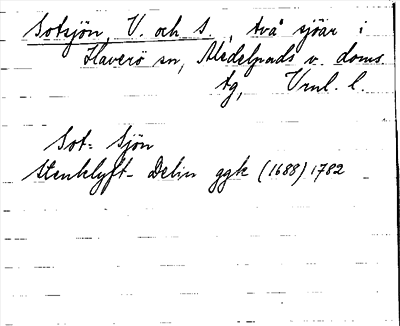 Sotsjön, V. och S., två sjöar i
Haverö sn, Medelpads v. doms.
tg, Vrnl. l.
Sot- Sjön
Stenklyft- Delin ggk (1688) 1782